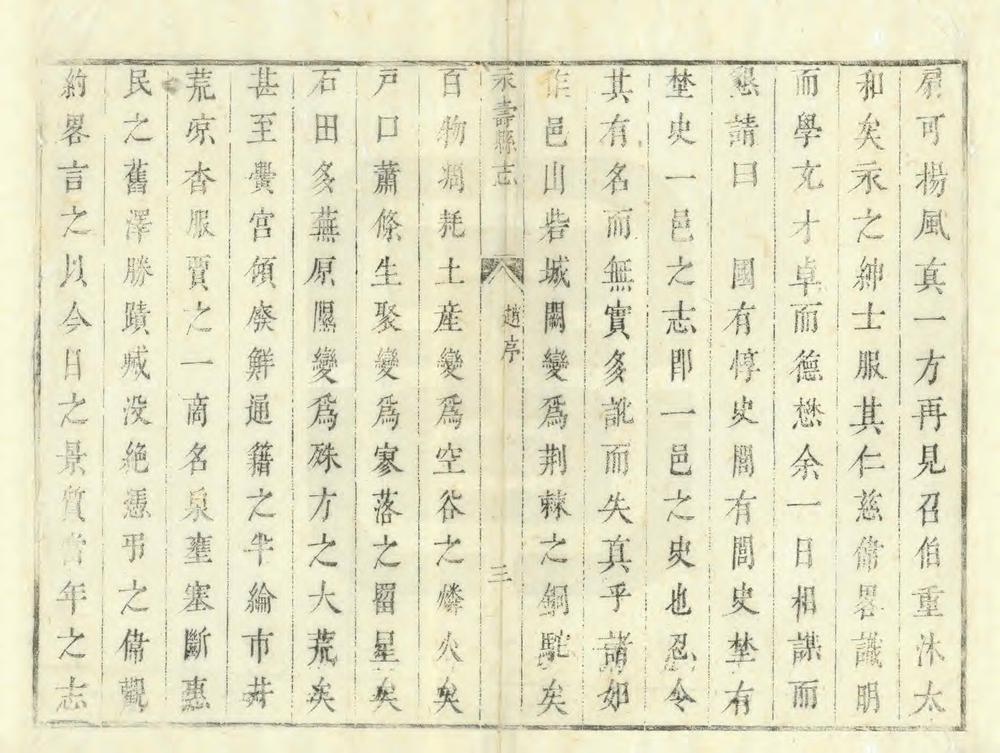 扇可揚風真一方再見召伯重沐太
和矣永之紳士服其仁慈偹畧識明
而學充才卓而德懋余一日相謀而
懇請曰　國有惇史閭有閭史埜有
埜史一邑之志即一邑之史也忍令
其有名而無實多訛而失真乎諸如
作邑山砦城闕變為荆棘之銅駝矣
永壽縣志　趙序　三
百物凋耗土産變為空谷之燐火矣
戶口蕭條生聚變為寥落之罶星矣
石田多蕪原隰變為殊方之大荒矣
甚至黌宮傾廢鮮通籍之半綸市井
荒凉杳服賈之一商名泉壅塞斷惠
民之舊澤勝蹟喊没絶憑弔之偹觀
約畧言之以今日之景質當年之志